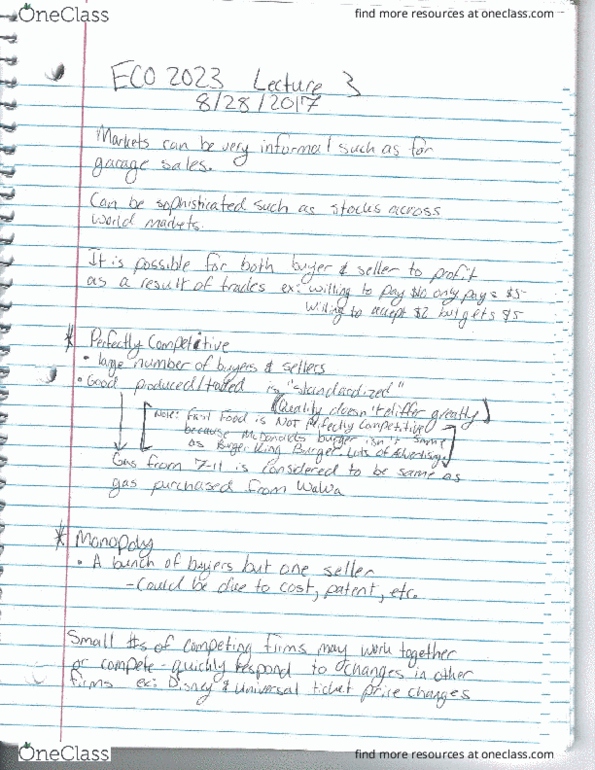 OneClass
find more resources at oneclass.com
ECO 2023 Lecture 3
8/28/2017
Markets can be very informal such as for
garage sales.
Can be sophisticated such as stocks across
world markets.
It is possible for both buyer & seller to profit
as a result of trades ex: willing to pay $10 only pays $5
willing to accept $2 but gets $5
* Perfectly Competitive
• large number of buyers & sellers
• Good produced/traded is "standardized"
(Quality doesn't differ greatly)
Note: Fast Food is Not Perfectly Competitive
because McDonald's burger isn't same
as Burger King Burger Lots of Advertising
Gas from 7-11 is considered to be same as
gas purchased from WaWa
* Monopoly
• A bunch of buyers but one seller
- Could be due to cost, patent, etc.
Small #s of competing firms may work together
or compete - quickly respond to changes in other
firms ex: Disney & Universal ticket price changes
OneClass
find more resources at oneclass.com